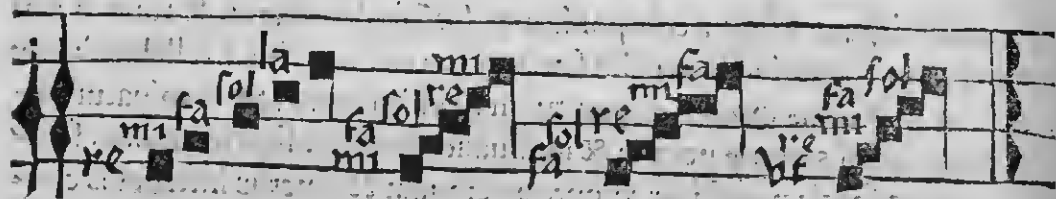 re mi fa sol la
mi fa sol re mi
fa sol re mi fa
vt re mi fa sol